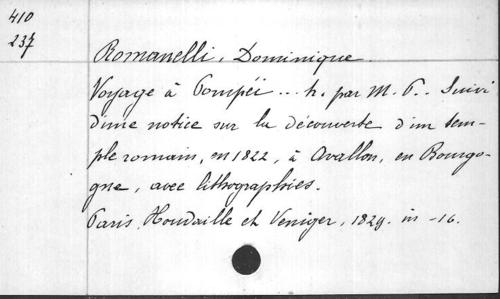 410
237
Romanelli, Dominique.
Voyage à Pompéi ... tr. par M. P.. Suivi
d'une notice sur la découverte d'un tem-
ple romain, en 1822, à Avallon, en Bourgo-
gne, avec lithographies.
Paris, Houdaille et Veniger, 1829. in -16.